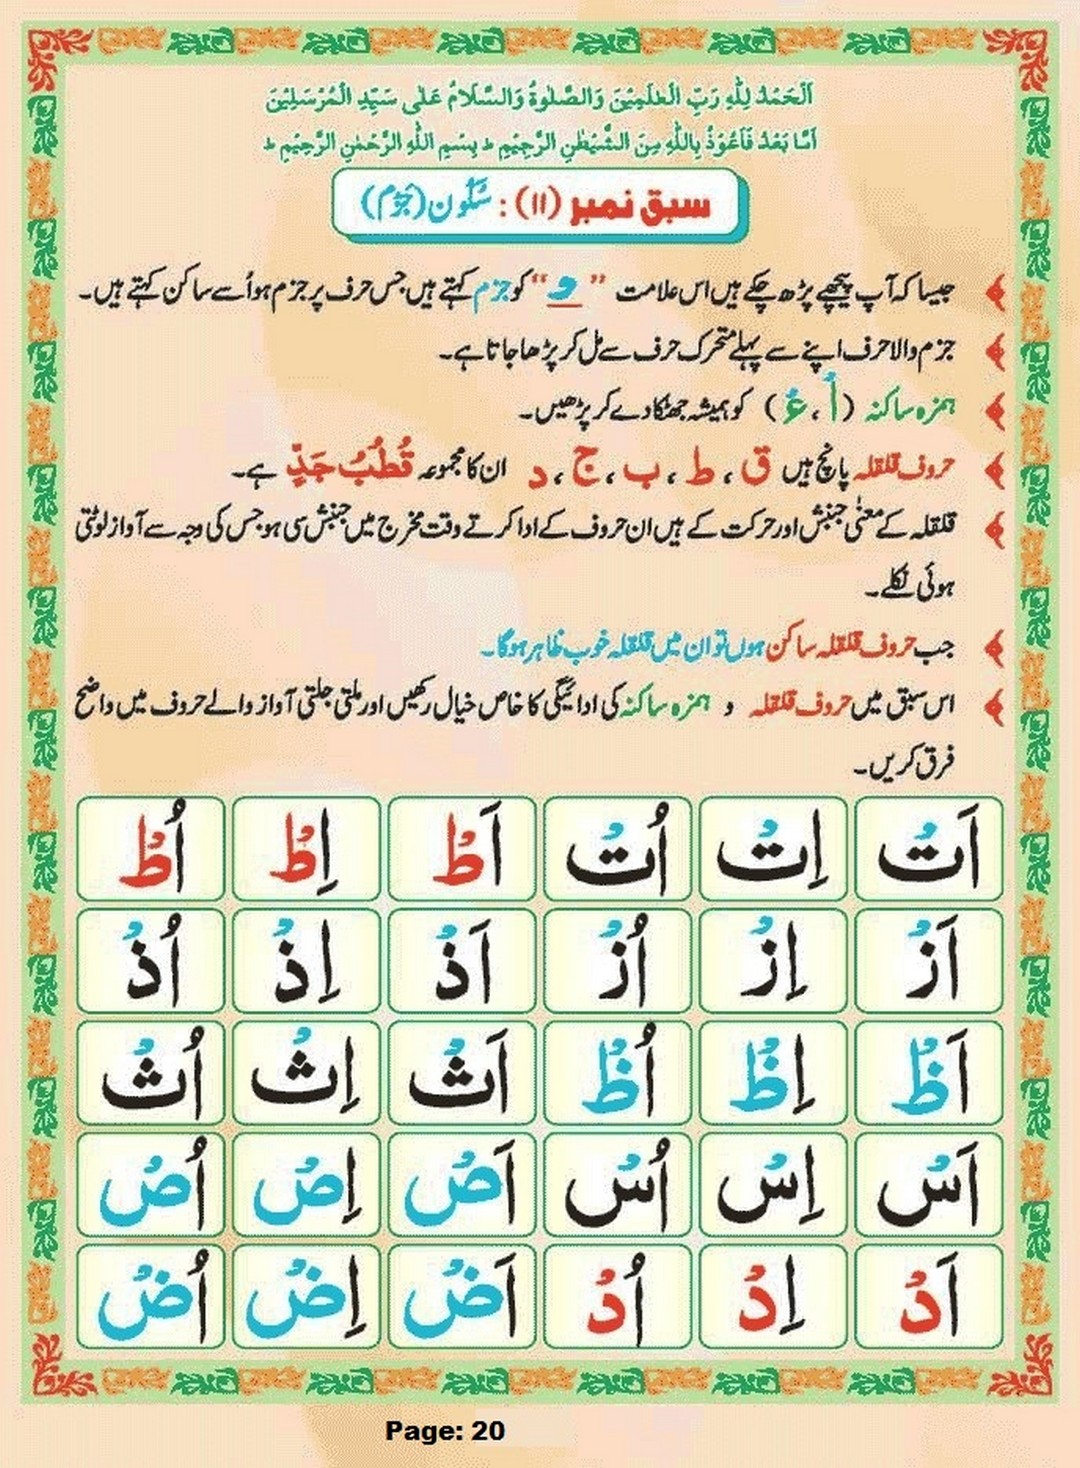 اَلْحَمْدُ لِلّٰهِ رَبِّ الْعٰلَمِيْنَ وَالصَّلٰوةُ وَالسَّلَامُ عَلٰى سَيِّدِ الْمُرْسَلِيْنَ
اَمَّا بَعْدُ فَاَعُوْذُ بِاللّٰهِ مِنَ الشَّيْطٰنِ الرَّجِيْمِ ط بِسْمِ اللّٰهِ الرَّحْمٰنِ الرَّحِيْمِ ط
سبق نمبر (۱۱) : سُکُون (جَزْم)
جیسا کہ آپ پیچھے پڑھ چکے ہیں اس علامت ” ـْ “ کو جزم کہتے ہیں جس حرف پر جزم ہو اُسے ساکن کہتے ہیں۔
جزم والا حرف اپنے سے پہلے متحرک حرف سے مل کر پڑھا جاتا ہے۔
ہمزہ ساکنہ (أْ ، ءْ) کو ہمیشہ جھٹکا دے کر پڑھیں۔
حروف قلقلہ پانچ ہیں ق ، ط ، ب ، ج ، د ان کا مجموعہ قُطُبُ جَدٍّ ہے۔
قلقلہ کے معنٰی جنبش اور حرکت کے ہیں ان حروف کے ادا کرتے وقت مخرج میں جنبش سی ہو جس کی وجہ سے آواز لوٹتی
ہوئی نکلے۔
جب حروف قلقلہ ساکن ہوں تو ان میں قلقلہ خوب ظاہر ہوگا۔
اس سبق میں حروف قلقلہ و ہمزہ ساکنہ کی ادائیگی کا خاص خیال رکھیں اور ملتی جلتی آواز والے حروف میں واضح
فرق کریں۔
اَتْ اِتْ اُتْ اَطْ اِطْ اُطْ
اَزْ اِزْ اُزْ اَذْ اِذْ اُذْ
اَظْ اِظْ اُظْ اَثْ اِثْ اُثْ
اَسْ اِسْ اُسْ اَصْ اِصْ اُصْ
اَدْ اِدْ اُدْ اَضْ اِضْ اُضْ
Page: 20